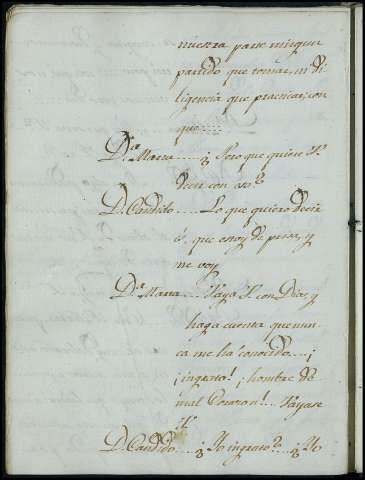 nuestra parte ningun
partido que tomar, ni di-
ligencia que practicar; con
que
D.ª Marta ..... ¿ Pero que quiere V.
decir con eso?
D. Candido ..... Lo que quiero decir
es, que estoy de prisa, y
me voy
D.ª Marta ..... Vaya V. con Dios, y
haga cuenta que nun-
ca me há conocido .... ¡
¡ingrato! ¡hombre de
mal Corazon! .. Vayase
V.
D. Candido ..... ¿Yo ingrato? ..... ¿Yo